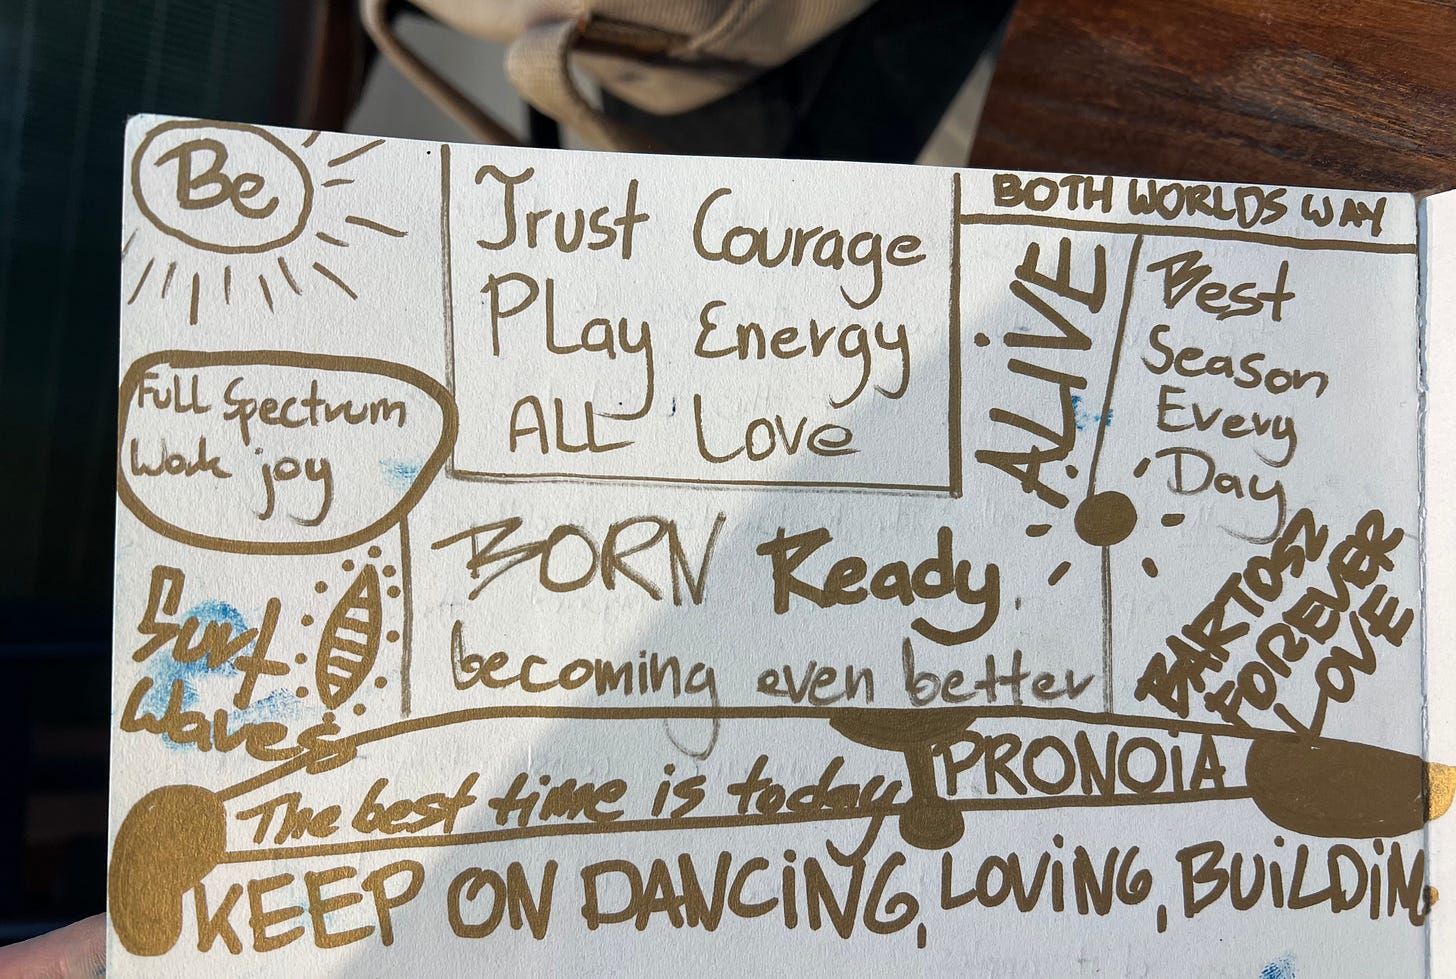 Be
Trust Courage
PLay Energy
ALL Love
BOTH WORLDS WAY
ALiVE
Best
Season
Every
Day
Full Spectrum
Work joy
BORN Ready
becoming even better
Surf
Waves
BARTOSZ
FOREVER
LOVE
The best time is today
PRONOiA
KEEP ON DANCiNG, LOViNG, BUiLDiN